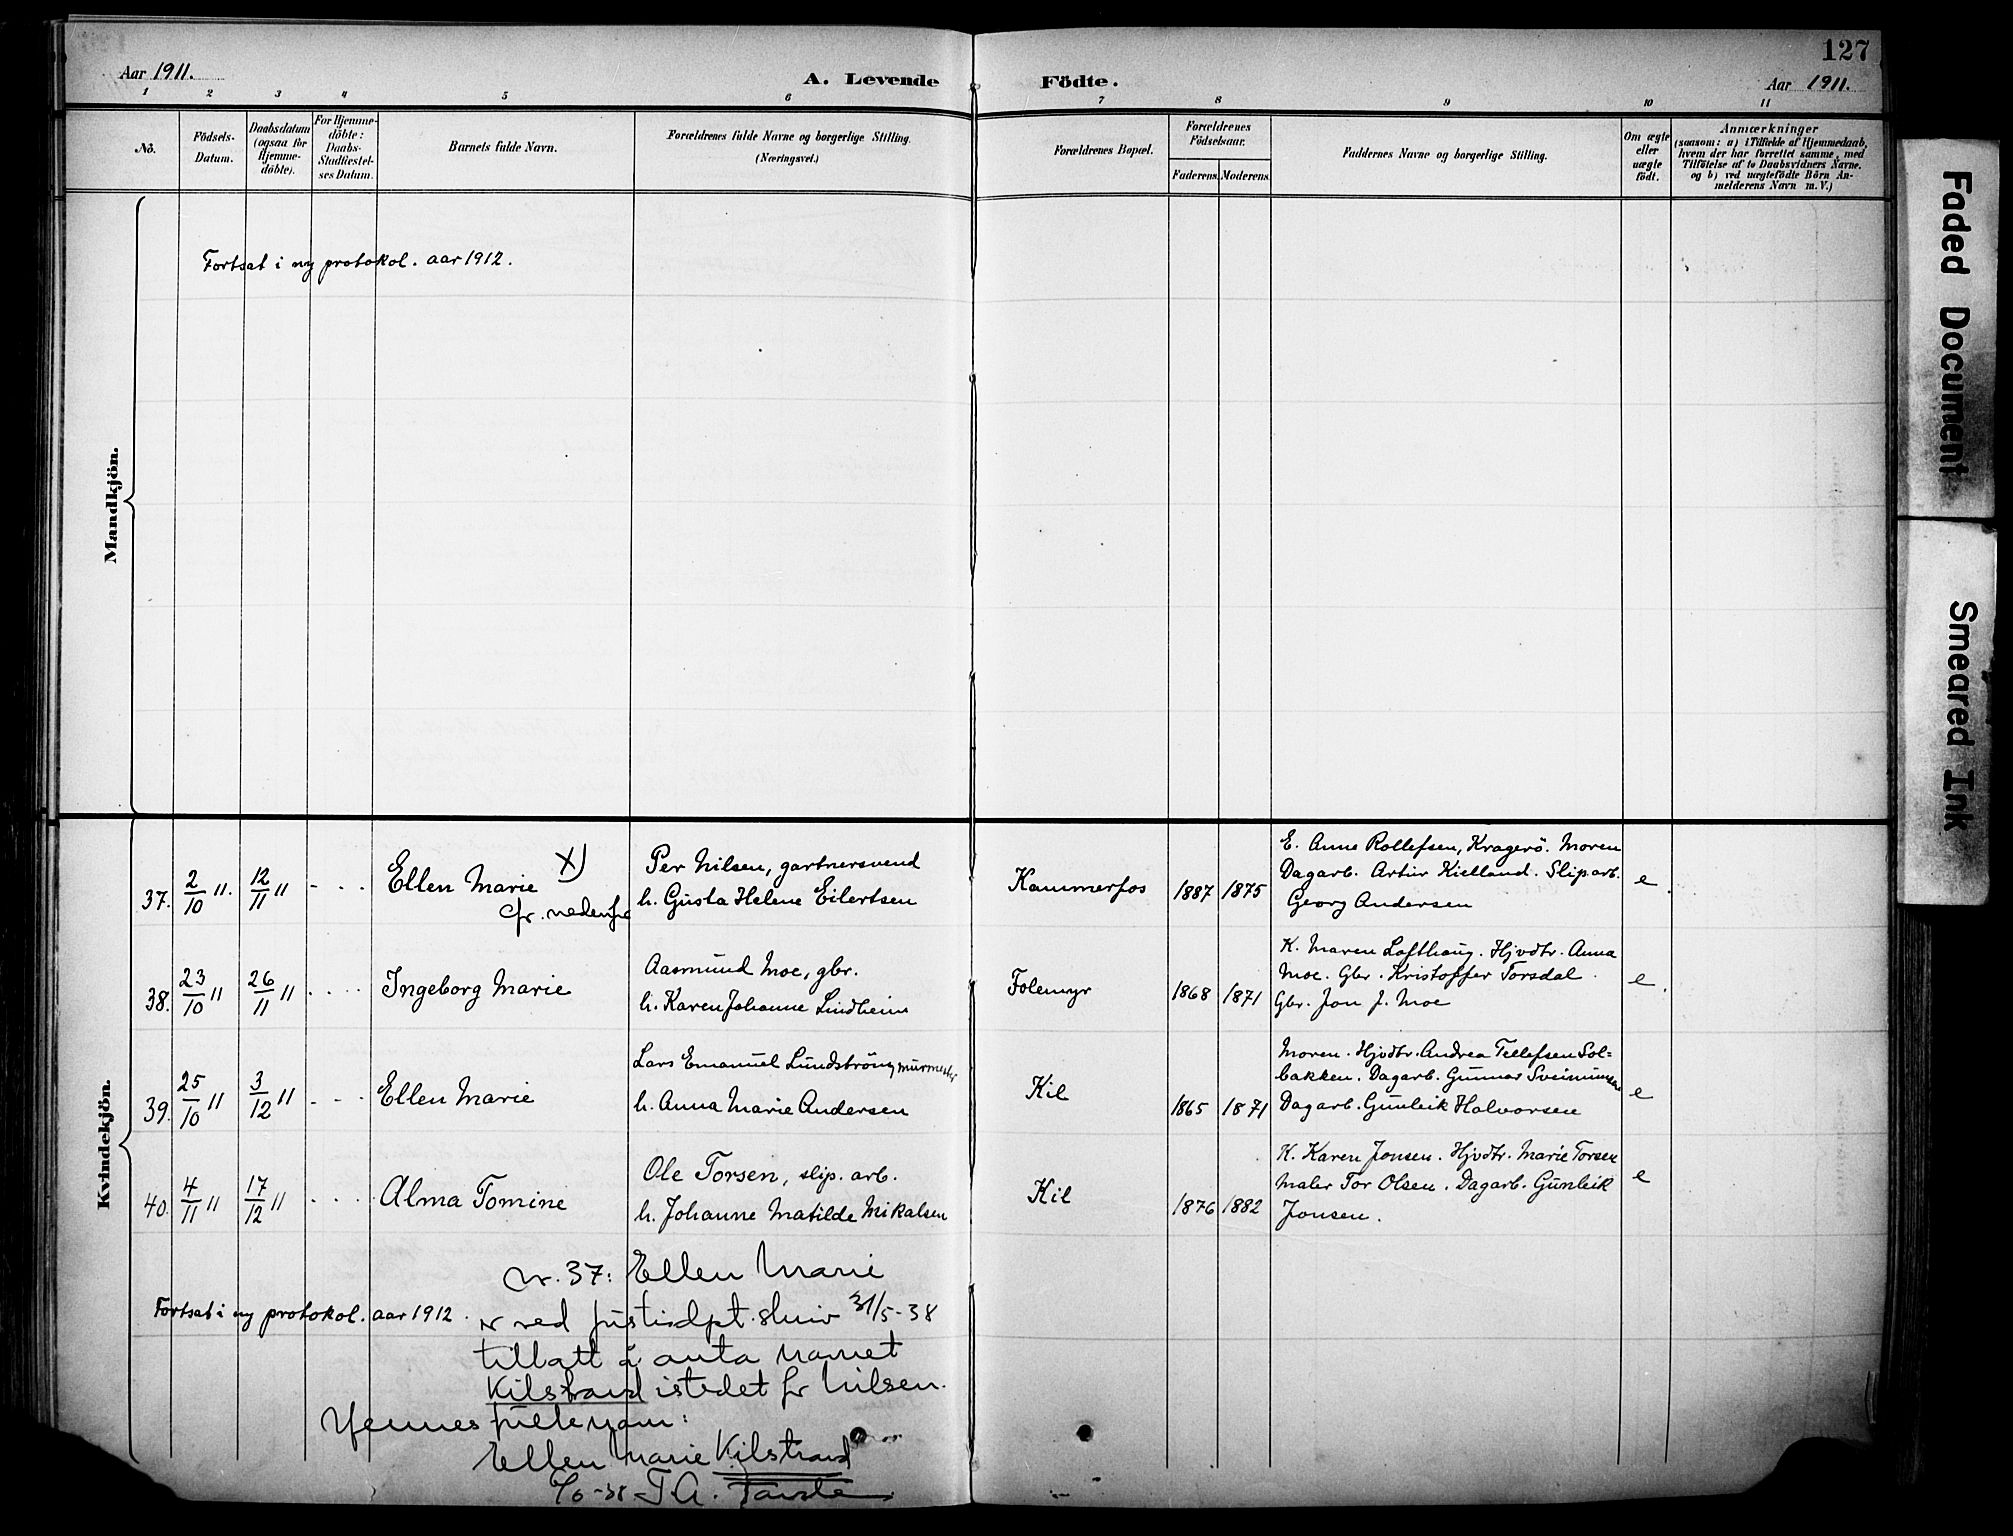 127
Aar 1911.
A. Levende Födte.
Aar 1911.
1 2 3 4 5 6 7 8 9 10 11
No.
Födsels-
Datum.
Daabsdatum
(ogsaa för
Hjemme-
døbte).
For Hjemme-
døbte:
Daabs-
Stadfæstel-
ses Datum.
Barnets fulde Navn.
Forældrenes fulde Navne og borgerlige Stilling.
(Næringsvei.)
Forældrenes Bopæl.
Forældrenes
Födselsaar.
Faderens. Moderens.
Faddernes Navne og borgerlige Stilling.
Om ægte
eller
uægte
födt.
Anmærkninger
(saasom: a) i Tilfælde af Hjemmedaab,
hvem der har forrettet samme, med
Tilföielse af to Daabsvidners Navne.
og b) ved uægtefödte Börn An-
melderens Navn m. V.)
Mandkjön.
Fortsat i ny protokol. aar 1912.
Kvindekjön.
37. 2/10 11. 12/11 11 - - - Ellen Marie X)
cfr. nedenfor
Per Nilsen, gartnersvend
h. Gusta Helene Eilertsen
Kammerfos 1887 1875
E. Anne Rollefsen, Kragerö. Moren
Dagarb. Artur Kielland. Sliparb.
Georg Andersen
e.
38. 23/10 11 26/11 11 - - - Ingeborg Marie
Aasmund Moe, gbr.
h. Karen Johanne Lindheim
Folemyr 1868 1871
K. Maren Lofthaug. Hjvdtr. Anna
Moe. Gbr. Kristoffer Torsdal.
Gbr. Jon J. Moe
e.
39. 25/10 11 3/12 11 - - - Ellen Marie
Lars Emanuel Lundström, murmester
h. Anna Marie Andersen
Kil 1865 1871
Moren. Hjvdtr. Andrea Tellefsen Sol=
bakken. Dagarb. Gunnar Sveinunsen
Dagarb. Gunleik Halvorsen
e
40. 4/11 11 17/12 11 - - - Alma Tomine
Ole Torsen, slip. arb.
h. Johanne Matilde Mikalsen
Kil 1876 1882
K. Karen Jonsen. Hjvdtr. Marie Torsen
Maler Tor Olsen. Dagarb. Gunleik
Jonsen.
e
Fortsat i ny protokol. aar 1912.
Nr. 37: Ellen Marie
er ved justisdpt. skriv 31/5-38
tillatt å anta navnet
Kilstrand istedet for Nilsen.
Hennes fulle navn:
Ellen Marie Kilstrand
T. A.
Faded Document
Smeared Ink